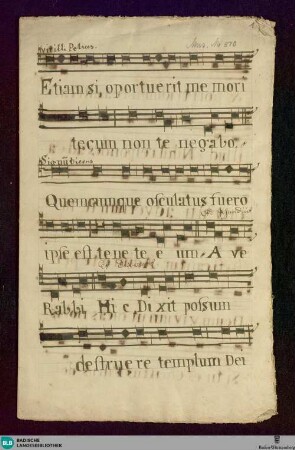 Petrus.
Etiam si, oportuerit me mori
tecum non te negabo.
Quemcunque osculatus fuero
ipse est te ne te e um. A ve
Rabbi. Hi c Di xit possum
destrue re templum Dei
BLB BADISCHE
LANDESBIBLIOTHEK